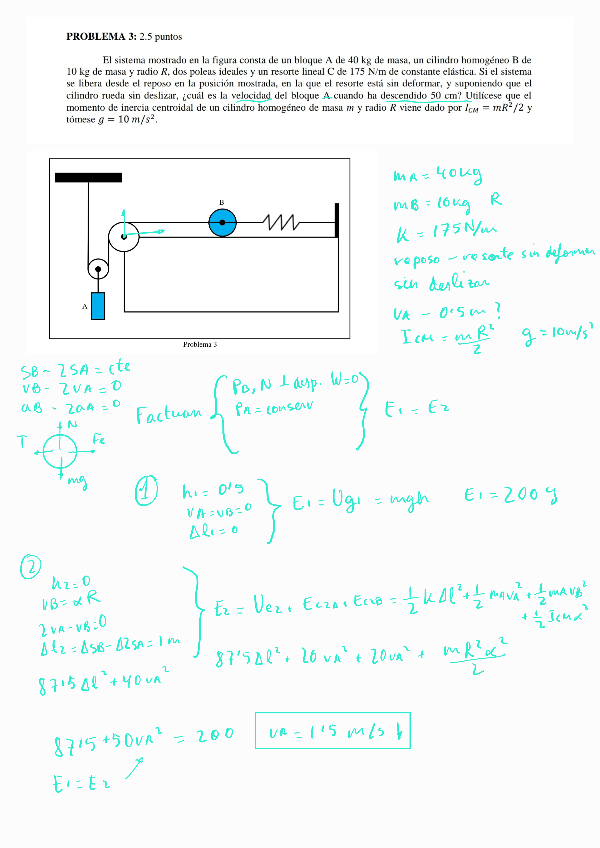 PROBLEMA 3: 2.5 puntos
El sistema mostrado en la figura consta de un bloque A de 40 kg de masa, un cilindro homogéneo B de
10 kg de masa y radio R, dos poleas ideales y un resorte lineal C de 175 N/m de constante elástica. Si el sistema
se libera desde el reposo en la posición mostrada, en la que el resorte está sin deformar, y suponiendo que el
cilindro rueda sin deslizar, ¿cuál es la velocidad del bloque A cuando ha descendido 50 cm? Utilícese que el
momento de inercia centroidal de un cilindro homogéneo de masa m y radio R viene dado por I_CM = mR²/2 y
tómese g = 10 m/s².
B
A
Problema 3
mA = 40kg
mB = 10kg R
K = 175 N/m
reposo - resorte sin deformar
sin deslizar
vA - 0'5m?
ICM = mR²/2 g = 10m/s²
SB - 2SA = cte
vB - 2vA = 0
aB - 2aA = 0
N
T Fe
mg
Factuan { PB, N ⊥ desp. W=0
PA = conserv } E1 = E2
① h1 = 0'5
vA = vB = 0
Δl1 = 0
E1 = Ug1 = mgh E1 = 200 J
②
h2 = 0
vB = αR
2vA - vB = 0
Δl2 = ΔSB - Δ2SA = 1 m
87'5 Δl² + 40vA²
E2 = Ue2 + Ec2A + Ec2B = 1/2 KΔl² + 1/2 mAvA² + 1/2 mAvB²
+ 1/2 ICMα²
87'5Δl² + 20vA² + 20vA² + mR²α²/2
87'5 + 50vA² = 200
vA = 1'5 m/s ↓
E1 = E2